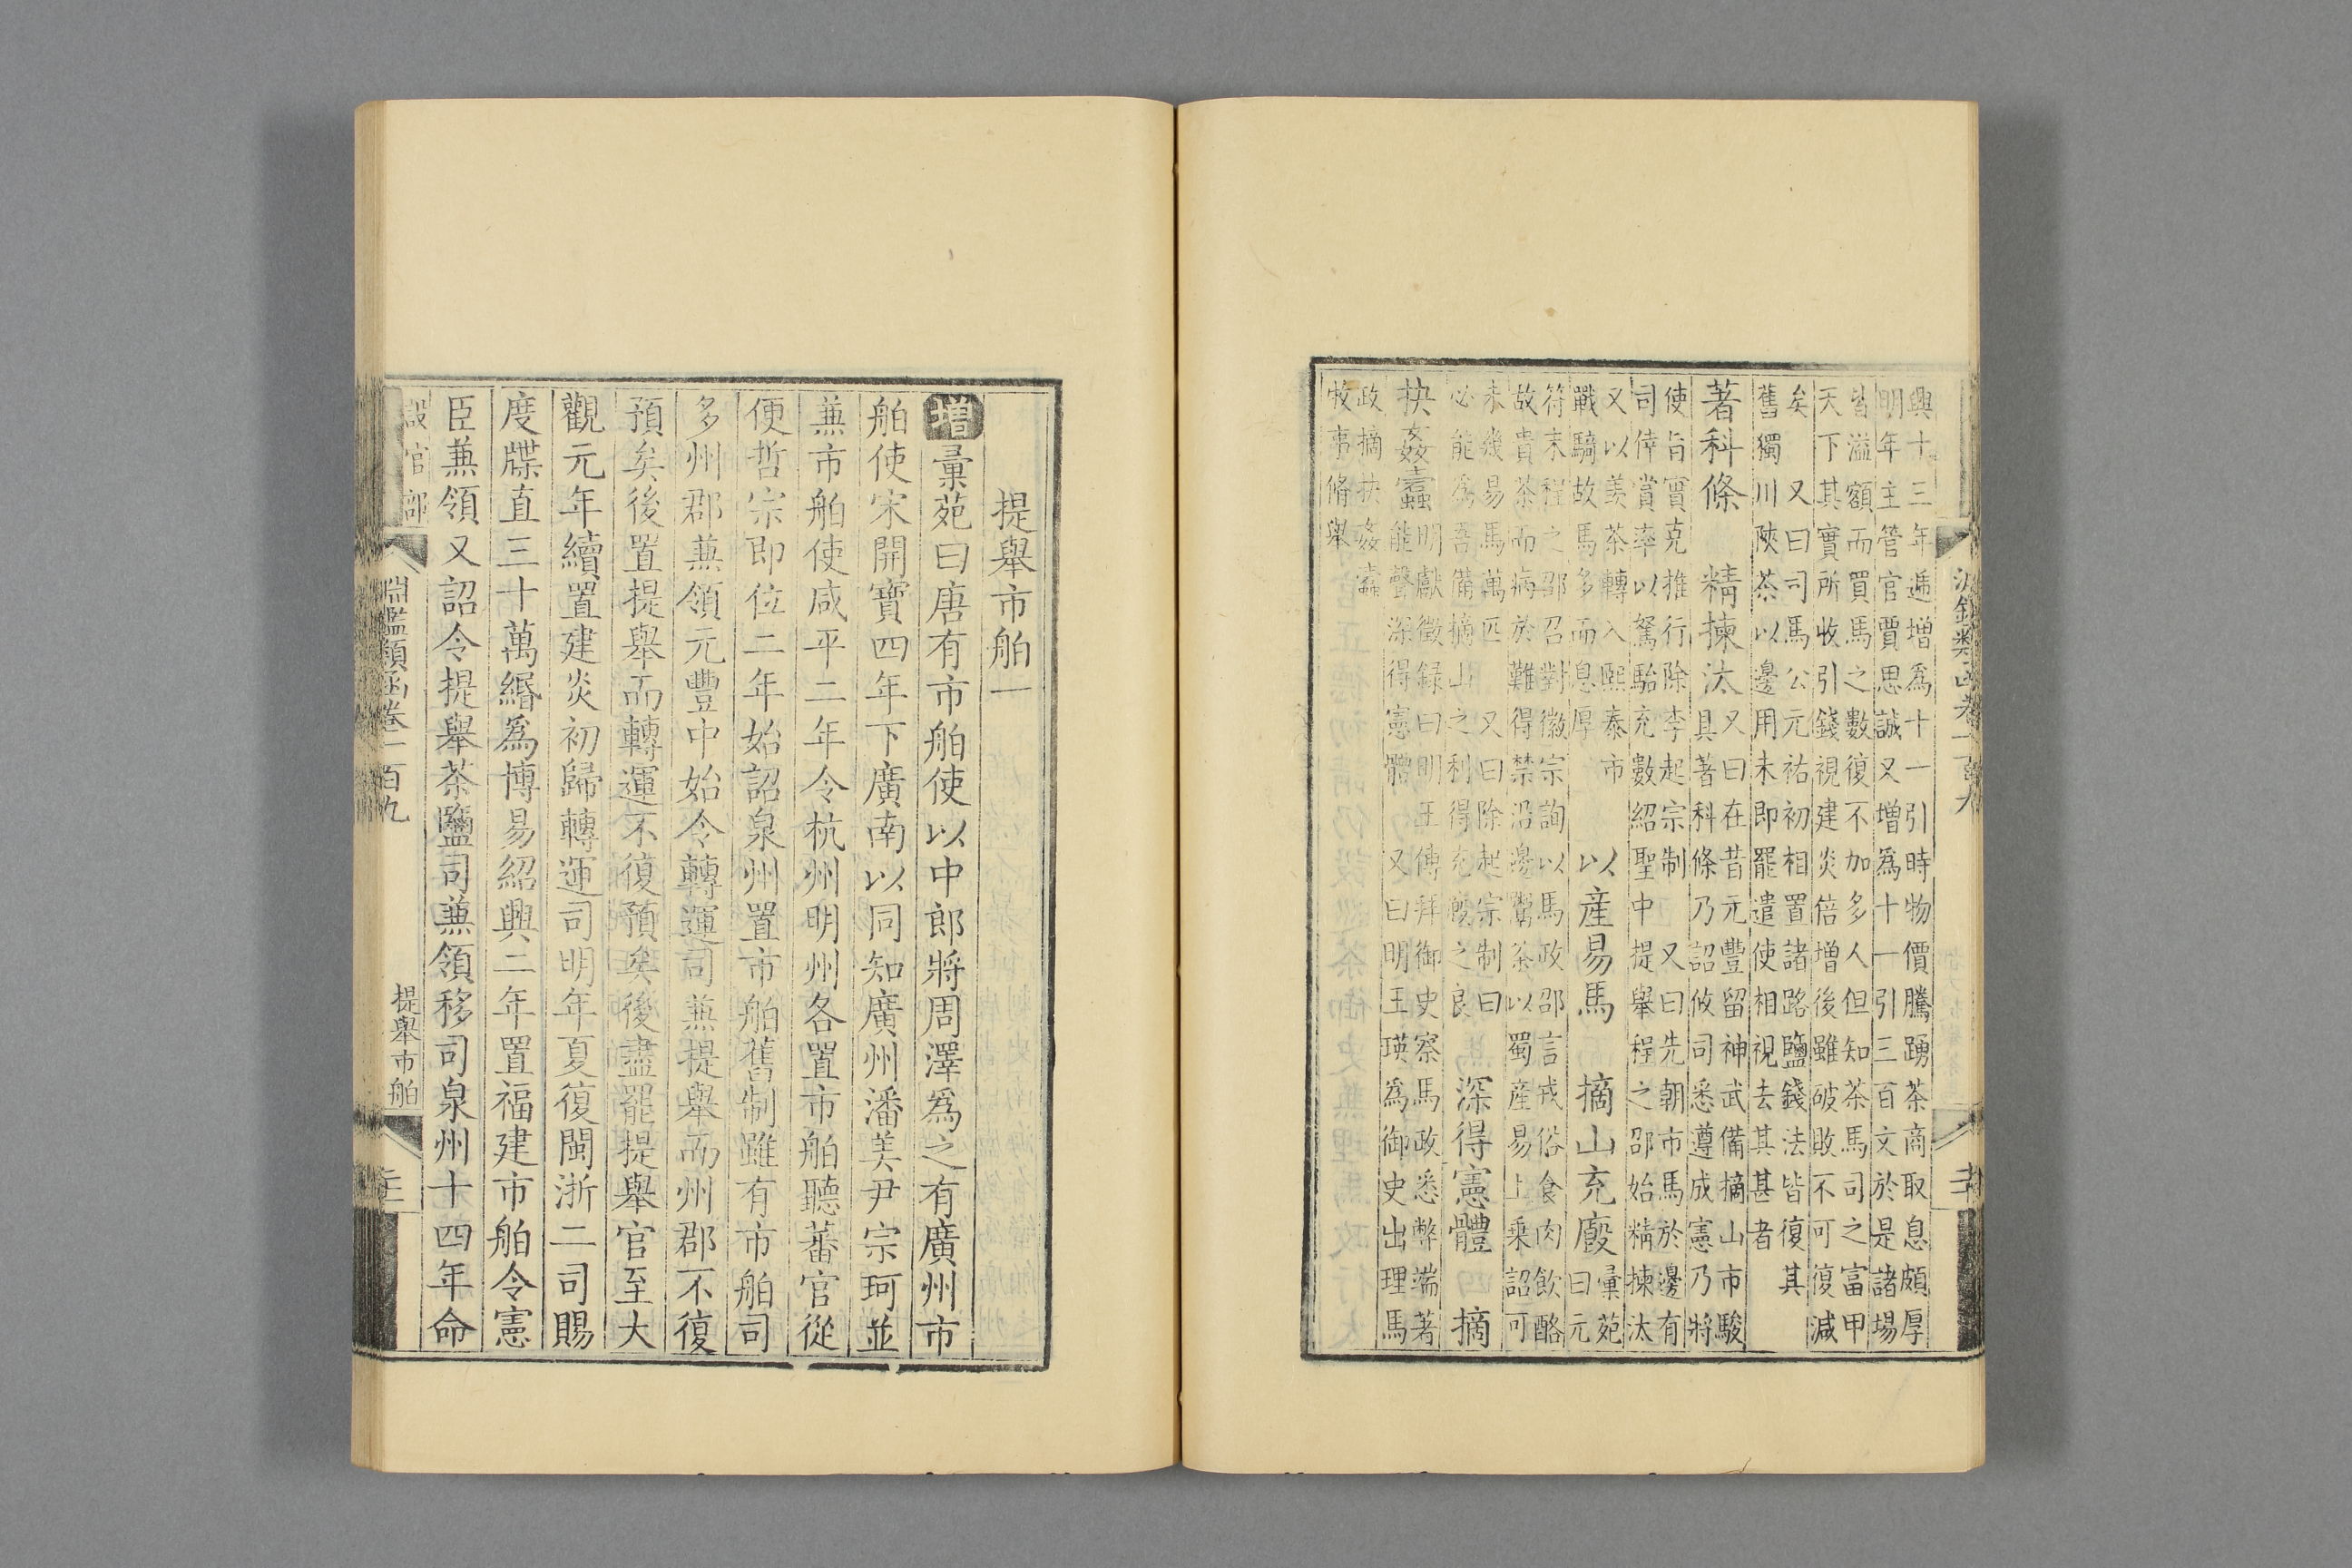 淵鑑類函卷一百九
興十三年遞增爲十一引時物價騰踴茶商取息頗厚
明年主管官賈思誠又增爲十一引三百文於是諸場
皆溢額而買馬之數復不加多人但知茶馬司之富甲
天下其實所收引錢視建炎倍增後雖破敗不可復減
矣 又曰司馬公元祐初相置諸路鹽錢法皆復其
舊獨川陝茶以邊用未即罷遣使相視去其甚者
著科條 精揀汰
又曰在昔元豐留神武備摘山市駿
具著科條乃詔攸司悉遵成憲乃將
使旨實克推行除李起宗制 又曰先朝市馬於邊有
司倖賞率以駑駘充數紹聖中提舉程之邵始精揀汰
又以羨茶轉入熙秦市
戰騎故馬多而息厚
以產易馬 摘山充廄
彙苑
曰元
符末程之邵召對徽宗詢以馬政邵言戎俗食肉飲酪
故貴茶而病於難得禁沿邊鬻茶以蜀產易上乘詔可
未幾易馬萬匹 又曰除起宗制曰
必能爲吾備摘山之利得充廄之良
深得憲體 摘
抉姦蠹
明獻徵録曰明王傳拜御史察馬政悉弊端著
能聲深得憲體 又曰明王瑛爲御史出理馬
政摘抉姦蠹
牧事脩舉
提舉市舶一
增彙苑曰唐有市舶使以中郎將周澤爲之有廣州市
舶使宋開寶四年下廣南以同知廣州潘美尹宗珂並
兼市舶使咸平二年令杭州明州各置市舶聽蕃官從
便哲宗即位二年始詔泉州置市舶舊制雖有市舶司
多州郡兼領元豐中始令轉運司兼提舉而州郡不復
預矣後置提舉而轉運不復預矣後盡罷提舉官至大
觀元年續置建炎初歸轉運司明年夏復閩浙二司賜
度牒直三十萬緡爲博易紹興二年置福建市舶令憲
臣兼領又詔令提舉茶鹽司兼領移司泉州十四年命
設官部
淵鑑類函卷一百九
提舉市舶